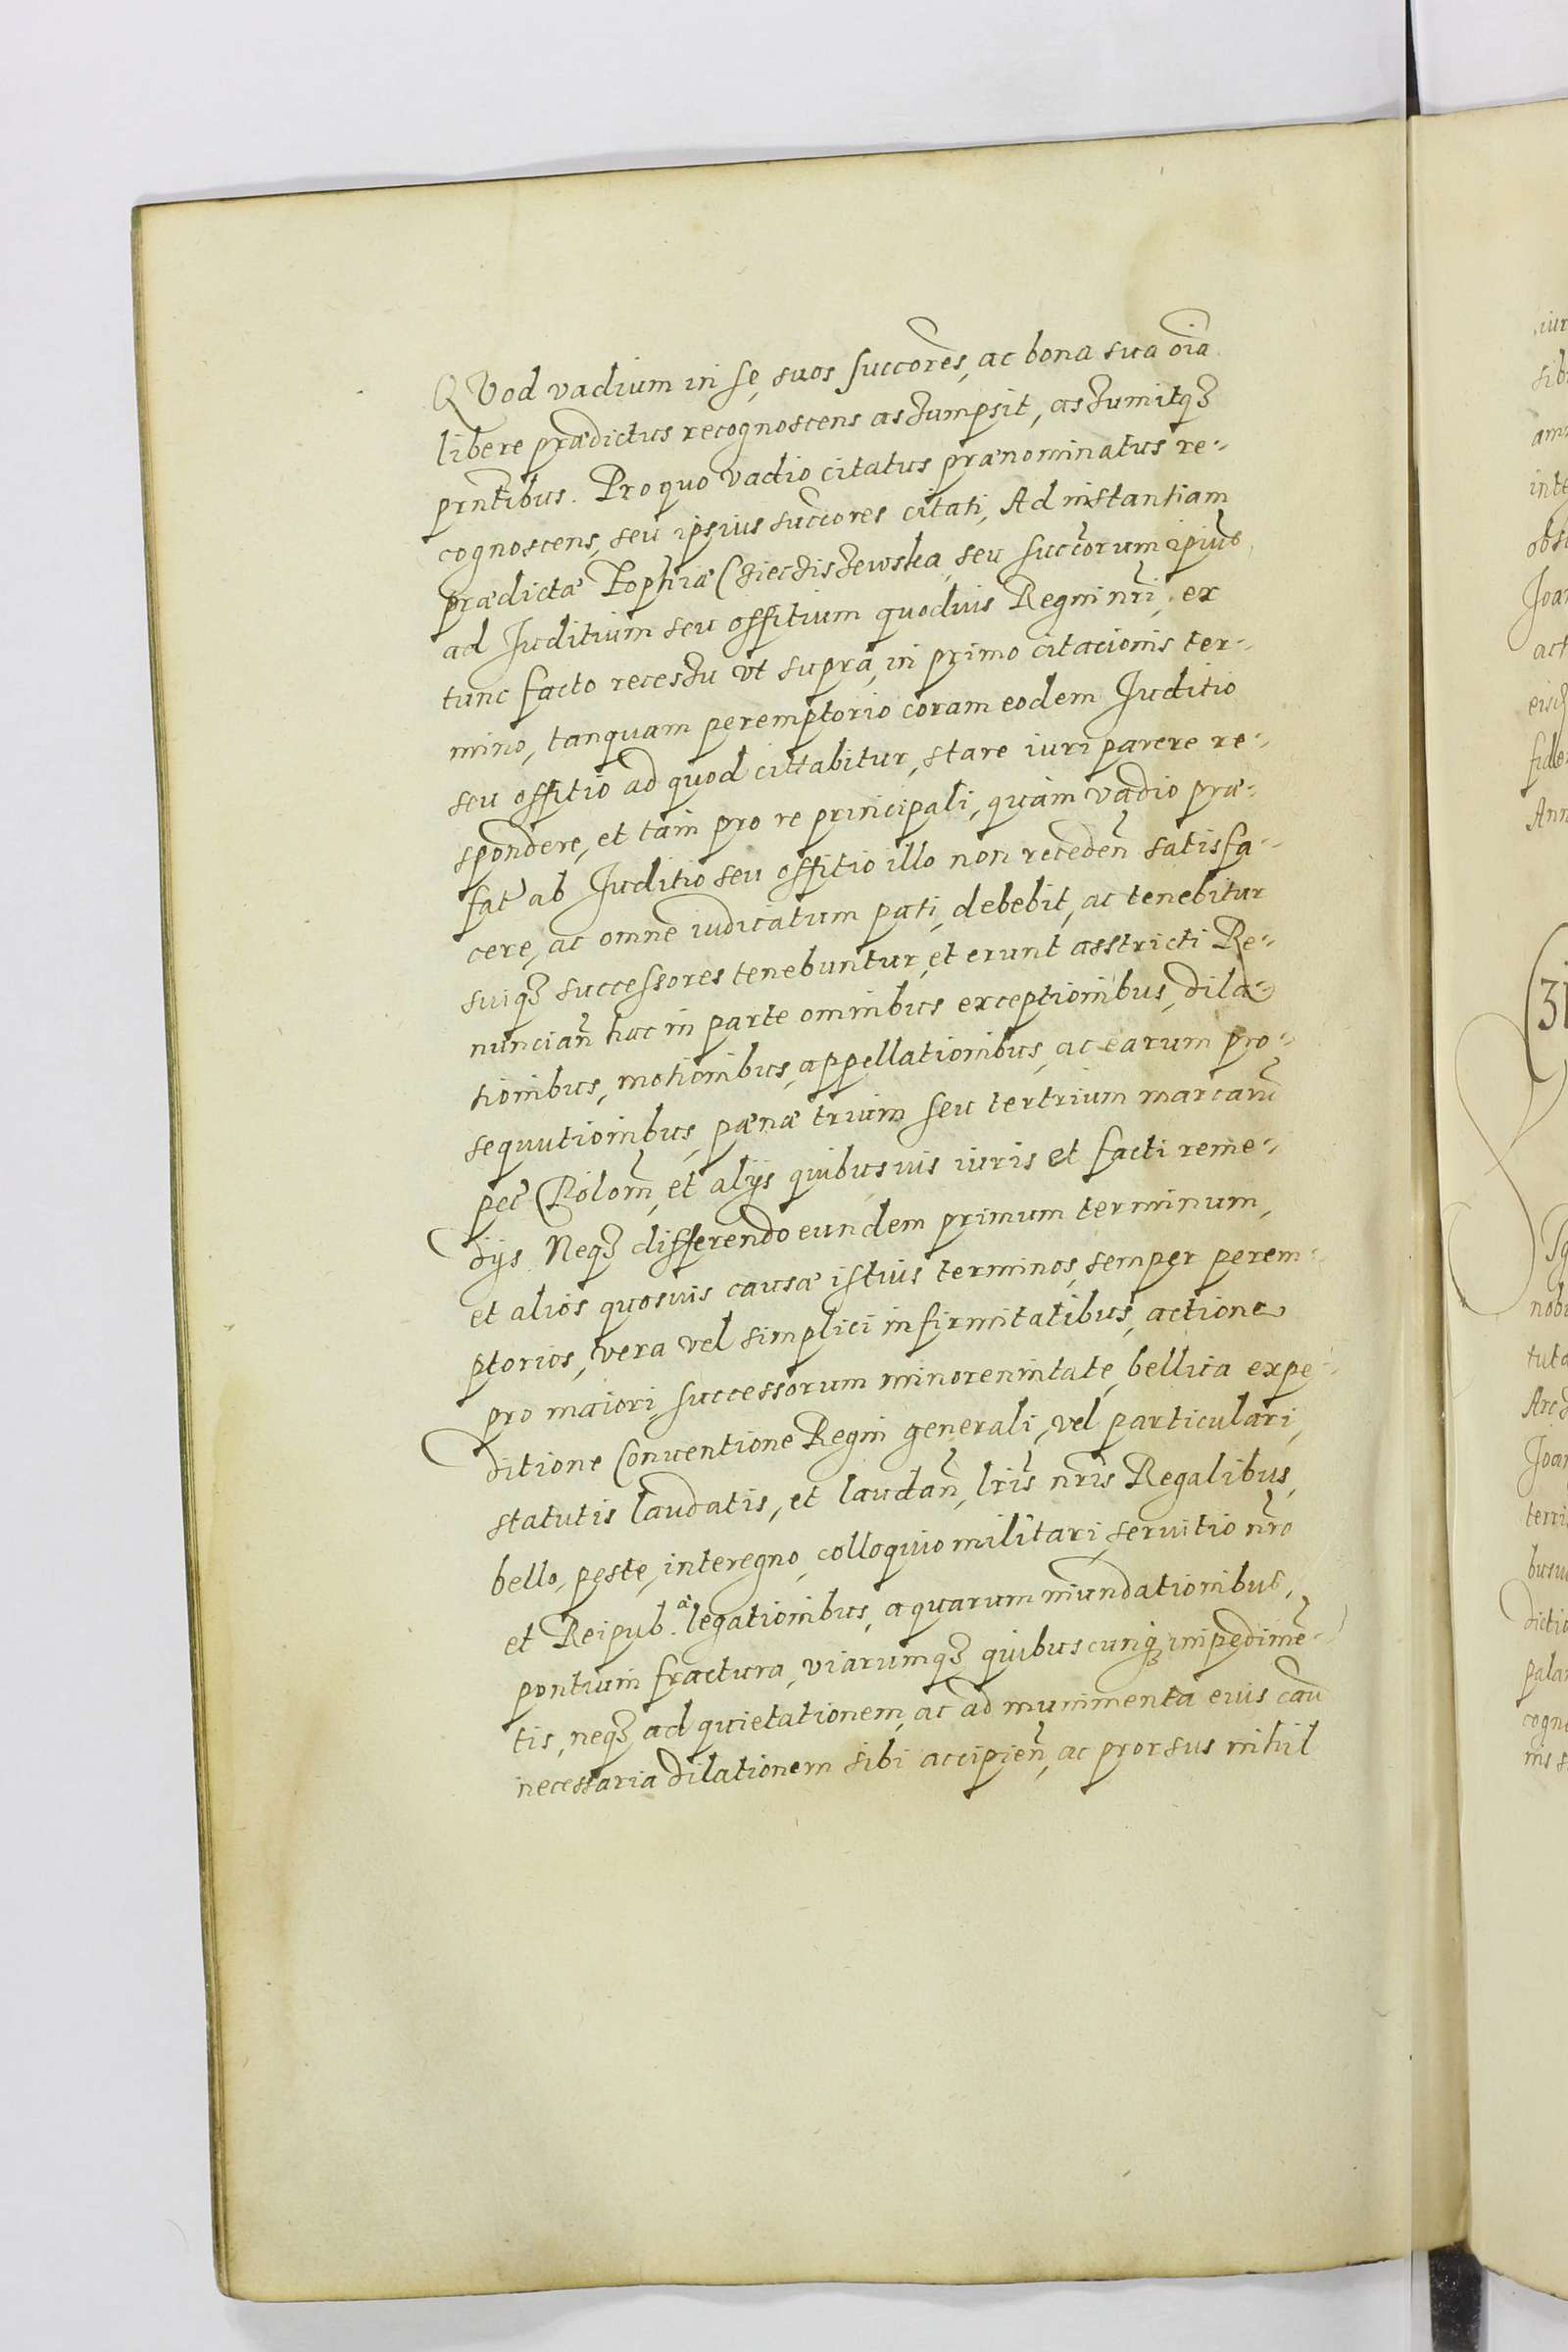 QVod vadium in se, suos succores, ac bona sua oīa
libere prædictus recognoscens assumpsit, assumitqꝫ
prn̄tibus. Pro quo vadio citatus prænominatus re-
cognoscens, seu ipsius succores citati, Ad instantiam
prædictæ Zophiæ Ciecziszewska, seu succorum ipius
ad Juditium seu offitium quoduis Regni nr̄i, ex
tunc facto recessu vt supra, in primo citacionis ter-
mino, tanquam peremptorio coram eodem Juditio
seu offitio ad quod cittabitur, stare iuri parere re-
spondere, et tam pro re principali, quàm vadio præ-
fat̄ ab Juditio seu offitio illo non recedeñ satisfa-
cere, ac omne iudicatum pati, debebit, ac tenebitur
suiqꝫ successores tenebuntur, et erunt asstricti Re-
nunciañ hac in parte omnibus exceptionibus, dila-
tionibus, motionibus, appellationibus, ac earum pro-
sequutionibus, pænæ trium seu tertrium marcarū
pec̄ Polom̄, et alijs quibusuis iuris et facti reme-
dijs. Neqꝫ differendo eundem primum terminum,
et alios quosuis causæ istius terminos, semper perem-
ptorios, vera vel simplici infirmitatibus, actione
pro maiori, successorum minorennitate, bellica expe-
ditione Conuentione Regni generali, vel particulari,
statutis laudatis, et laudañ, lr̄is nr̄is Regalibus,
bello, peste, interegno, colloquio militari, seruitio nr̄o
et Reipub.ᵃᵉ legationibus, aquarum inundationibus,
pontium fractura, viarumqꝫ quibuscunqꝫ impedimē-
tis, neqꝫ ad quietationem, ac ad munimenta eius caū
necessaria dilationem sibi accipieñ, ac prorsus nihil